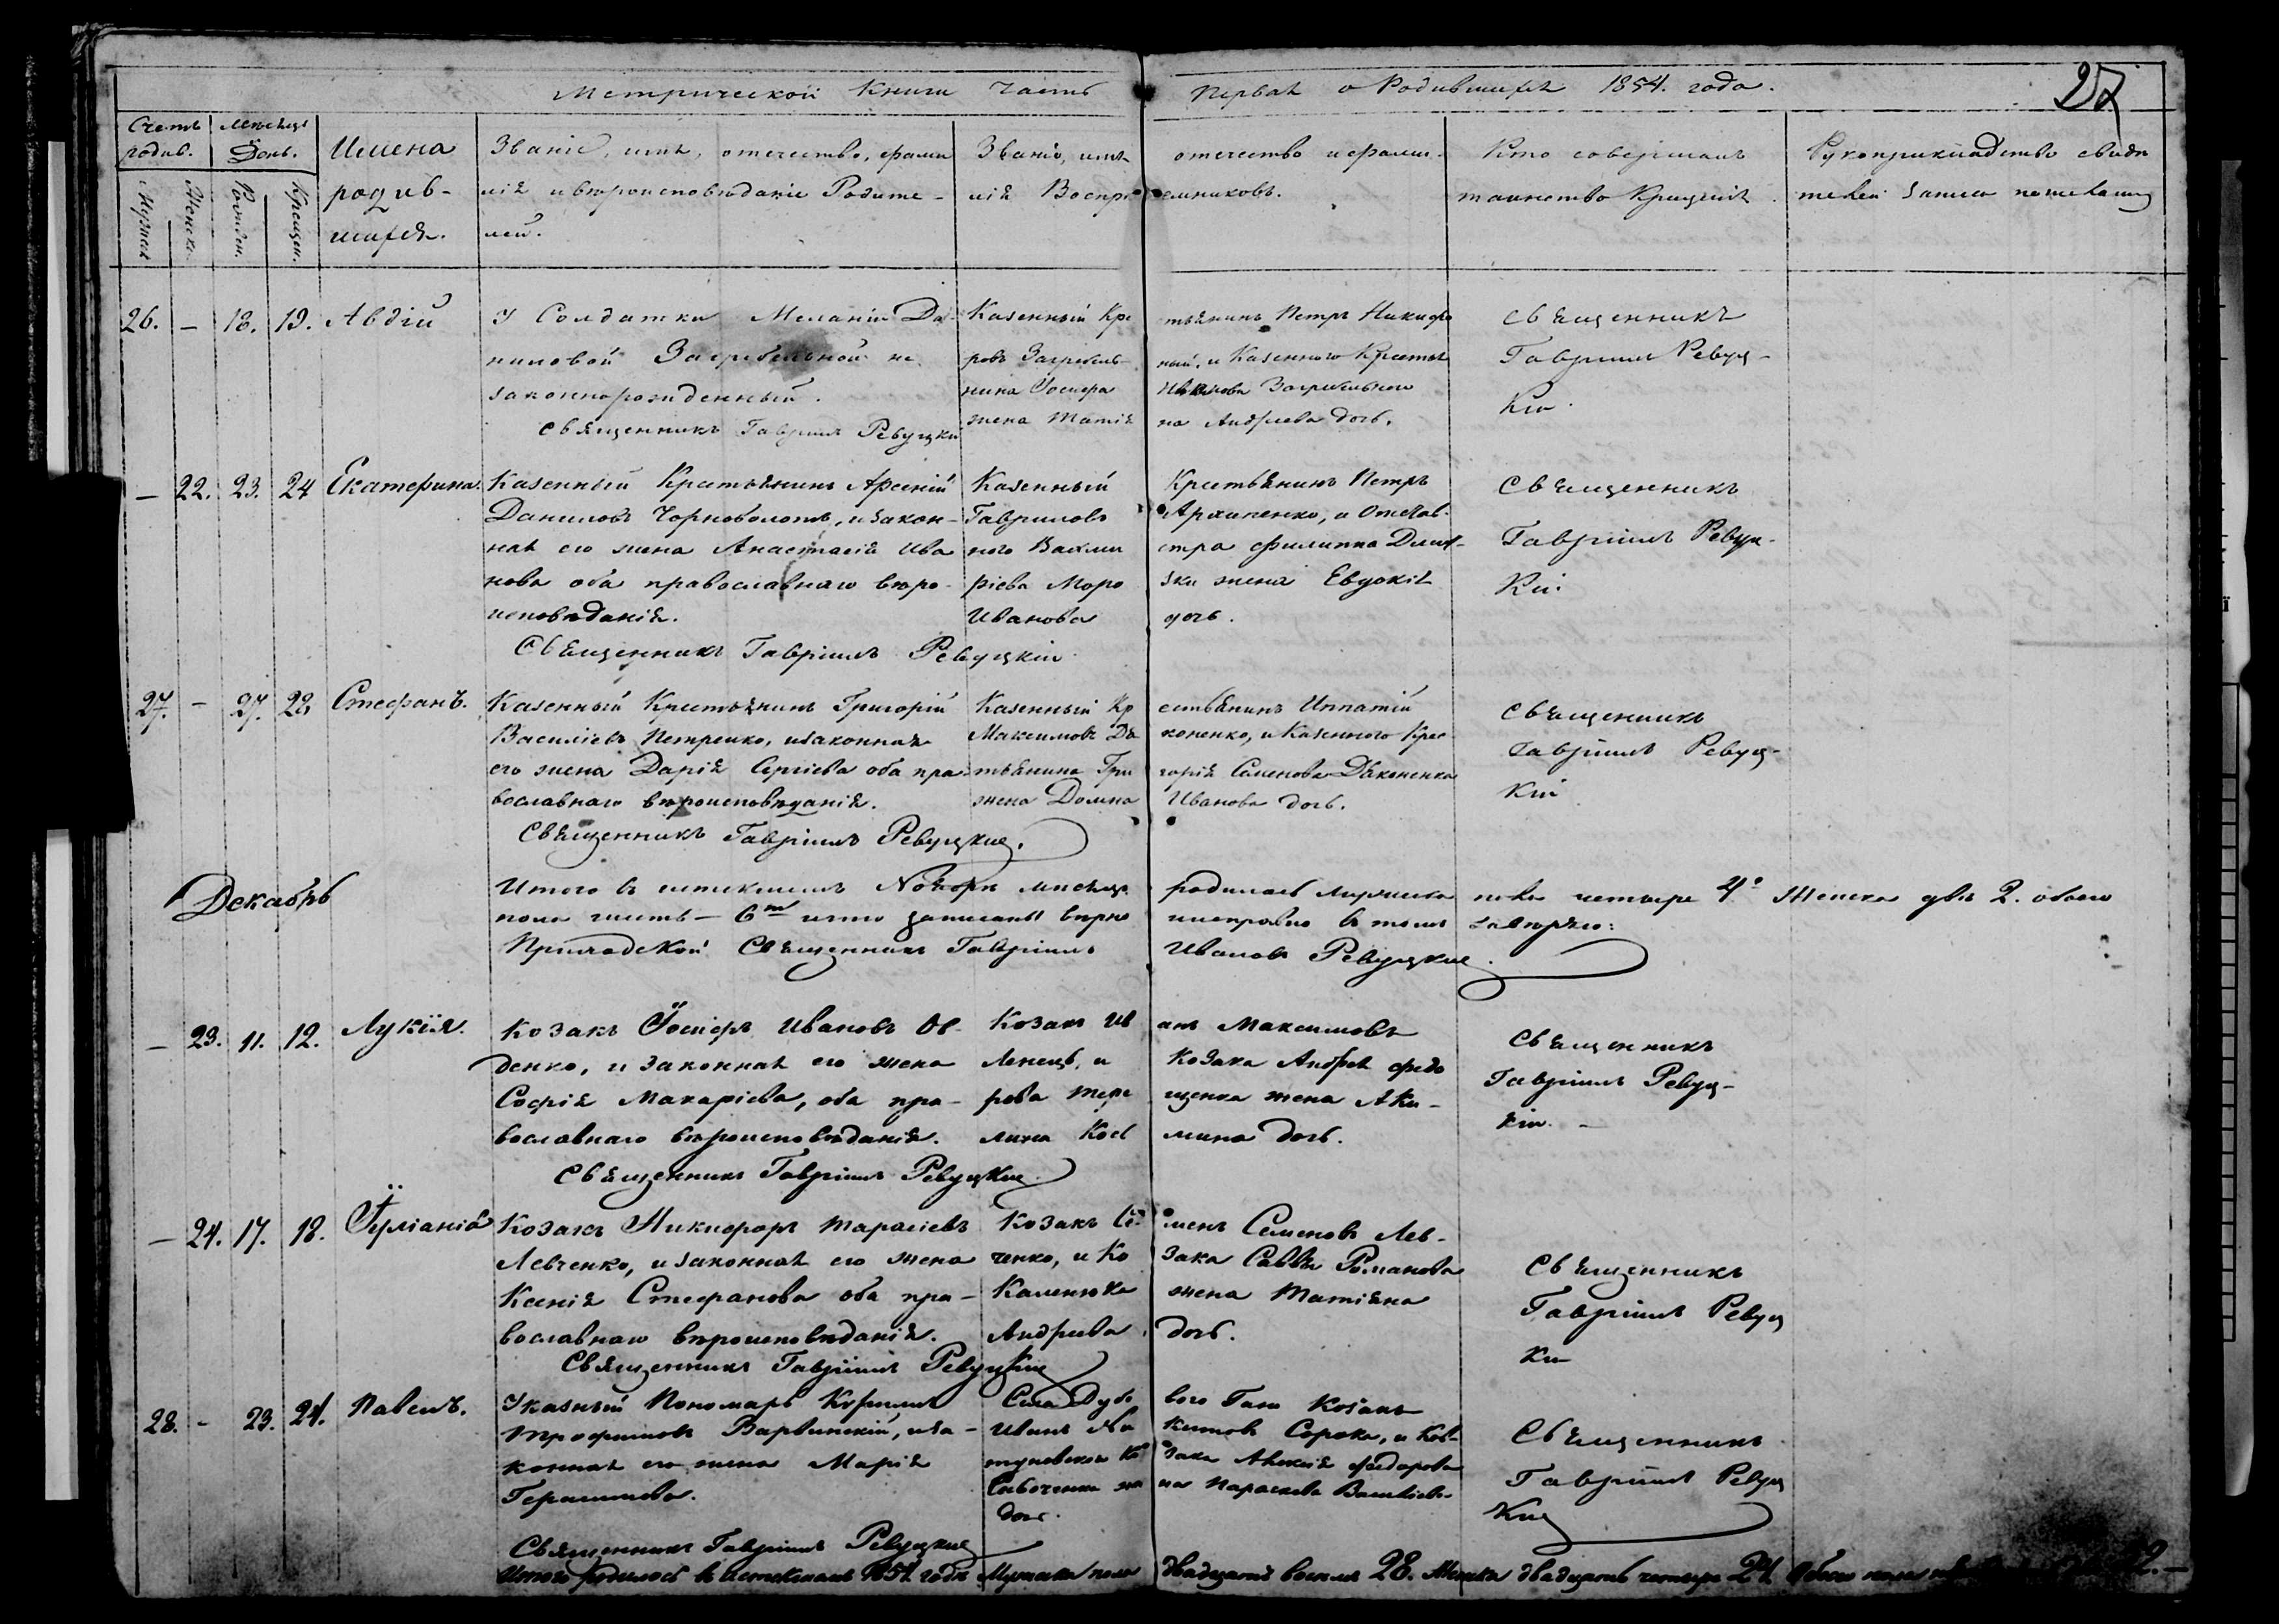 Метрической Книги Часть Первая о Родившихся 1854. года.
27
Счетъ родив.
Мѣсяцъ День.
Мужеск
Женск.
Рожден.
Крещен.
Имена
родив-
шихся.
Званіе, имя, отечество, фами
лія и вѣроисповѣданіе Родите-
лей.
Званіе, имя отечество и фами-
лія Воспріемниковъ.
Кто совершалъ
таинство Крещенія
Рукоприкладство свидѣ
телей записи по желанію
26. — 18. 19. Авдій
У Солдатки Меланіи Да-
ниловой Загребельной не
законнорожденный.
Священникъ Гавріилъ Ревуцкій
Казенный Крестьянинъ Петръ Никифо
ровъ Загребельный, и Казенного Крестья
нина Іосифа Загребельного
жена Татіяна Андреева дочь.
Священникъ
Гавріилъ Ревуц-
кій.
— 22. 23. 24 Екатерина.
Казенный Крестьянинъ Арсеній
Даниловъ Чорноболотъ, и закон-
ная его жена Анастасія Ива
нова оба православнаго вѣро-
исповѣданія.
Священникъ Гавріилъ Ревуцкій
Казенный Крестьянинъ Петръ
Гавриловъ Архипенко, и Отстав-
ного Вахмистра Филиппа
жена Евдокія
Иванова дочь.
Священникъ
Гавріилъ Ревуц-
кій.
27. — 27. 28 Стефанъ.
Казенный Крестьянинъ Григорій
Василіевъ Петренко, и законная
его жена Дарія Сергіева оба пра-
вославнаго вѣроисповѣданія.
Священникъ Гавріилъ Ревуцкій.
Казенный Крестьянинъ Ипатій
Максимовъ Дяконенко, и Казенного Крес
тьянина Григорія Семенова Дяконенка
жена Домна Иванова дочь.
Священникъ
Гавріилъ Ревуц-
кій
Декабрь
Итого в истекшемъ Ноябрѣ мѣсяцѣ родилось мужеска пола четыре 4. Женска двѣ 2. обоего
пола шесть — 6 что записаны вѣрно исправно в томъ завѣряю:
Приходской Священникъ Гавріилъ Ивановъ Ревуцкій.
— 23. 11. 12. Лукія.
Козакъ Іосифъ Ивановъ Ов-
денко, и законная его жена
Софія Макаріева, оба пра-
вославнаго вѣроисповѣданія.
Священникъ Гавріилъ Ревуцкій.
Козакъ Иванъ Максимовъ
Ленецъ, и Козака Андрея Федо
рова Терещенка жена Аки-
лина дочь.
Священникъ
Гавріилъ Ревуц-
кій. —
— 24. 17. 18. Іуліанія
Козакъ Никифоръ Тарасіевъ
Левченко, и законная его жена
Ксенія Стефанова оба пра-
вославнаго вѣроисповѣданія.
Священникъ Гавріилъ Ревуцкій
Козакъ Семенъ Семеновъ Лев-
ченко, и Козака Саввы Романова
Каленюка жена Татіяна
Андреева дочь.
Священникъ
Гавріилъ Ревуц
кій
28. — 23. 24. Павелъ.
Указный Пономарь Кириллъ
Трофимовъ Варвинскій, и за-
конная его жена Марія
Герасимова.
Священникъ Гавріилъ Ревуцкій
Села Дубового Гаю Козакъ
Иванъ Сорока, и
Козака Алексія Федорова
жена Параскева Василіева
дочь.
Священникъ
Гавріилъ Ревуц
кій
Итого родилось въ истекшемъ 1854 годѣ Мужеска пола двадцать восемь 28. Женска двадцать четыре 24 Обоего пола